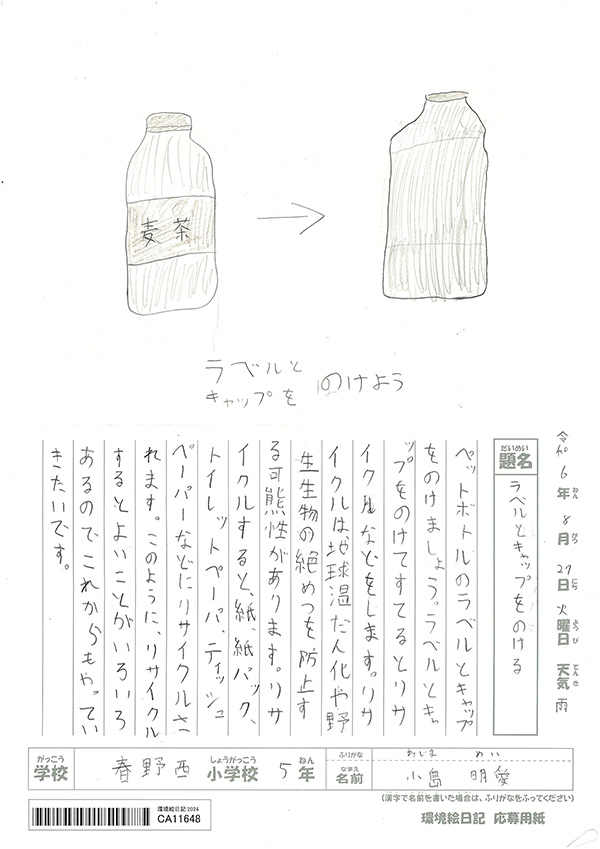 麦茶
ラベルと
キャップを
のけよう
令和6年8月27日火曜日 天気雨
だいめい
題名
ラベルとキャップをのける
ペットボトルのラベルとキャップ
をのけましょう。ラベルとキャ
ップをのけてすてるとリサ
イクルなどをします。リサ
イクルは、地球温だん化や野
生生物の絶めつを防止す
る可熊性があります。リサ
イクルすると、紙、紙パック、
トイレットペーパ、ティッシュ
ペーパーなどにリサイクルさ
れます。このように、リサイクル
するとよいことがいろいろ
あるのでこれからもやってい
きたいです。
がっこう
学校
春野西
しょうがっこう
小学校
5
ねん
年
ふりがな
おじま めい
なまえ
名前
小島 明愛
(漢字で名前を書いた場合は、ふりがなをふってください)
環境絵日記2024
CA11648
環境絵日記 応募用紙